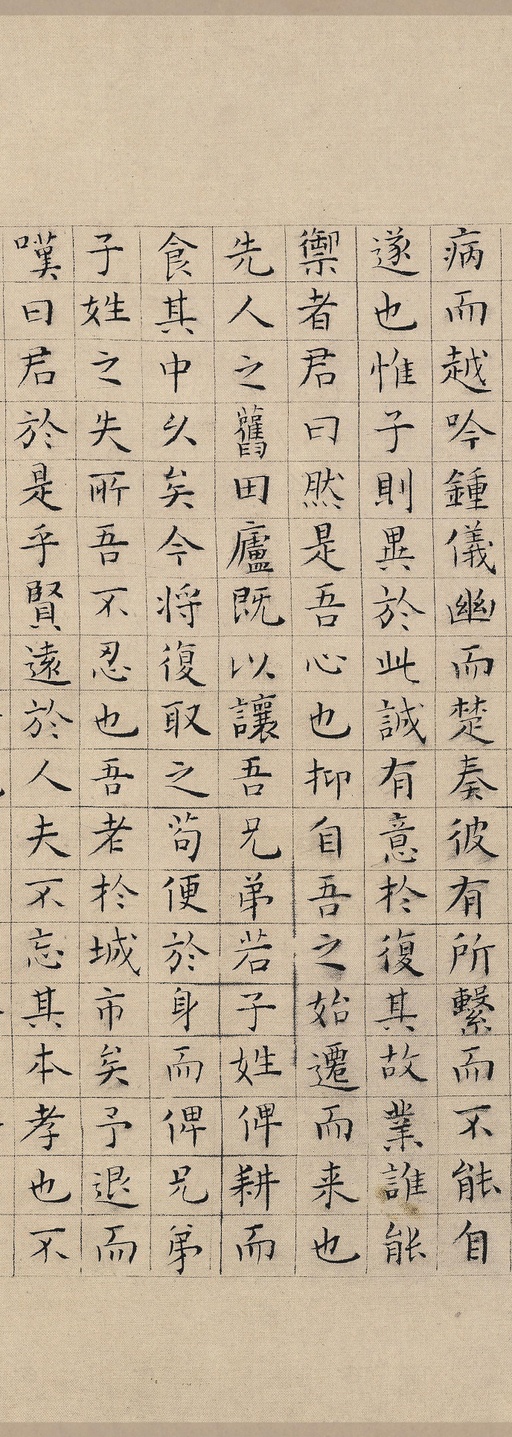 病而越吟鍾儀幽而楚奏彼有所繫而不能自
遂也惟子則異於此誠有意於復其故業誰能
禦者君曰然是吾心也抑自吾之始遷而来也
先人之舊田廬既以讓吾兄弟若子姓俾耕而
食其中久矣今将復取之茍便於身而俾兄弟
子姓之失所吾不忍也吾老於城市矣予退而
嘆曰君於是乎賢遠於人夫不忘其本孝也不